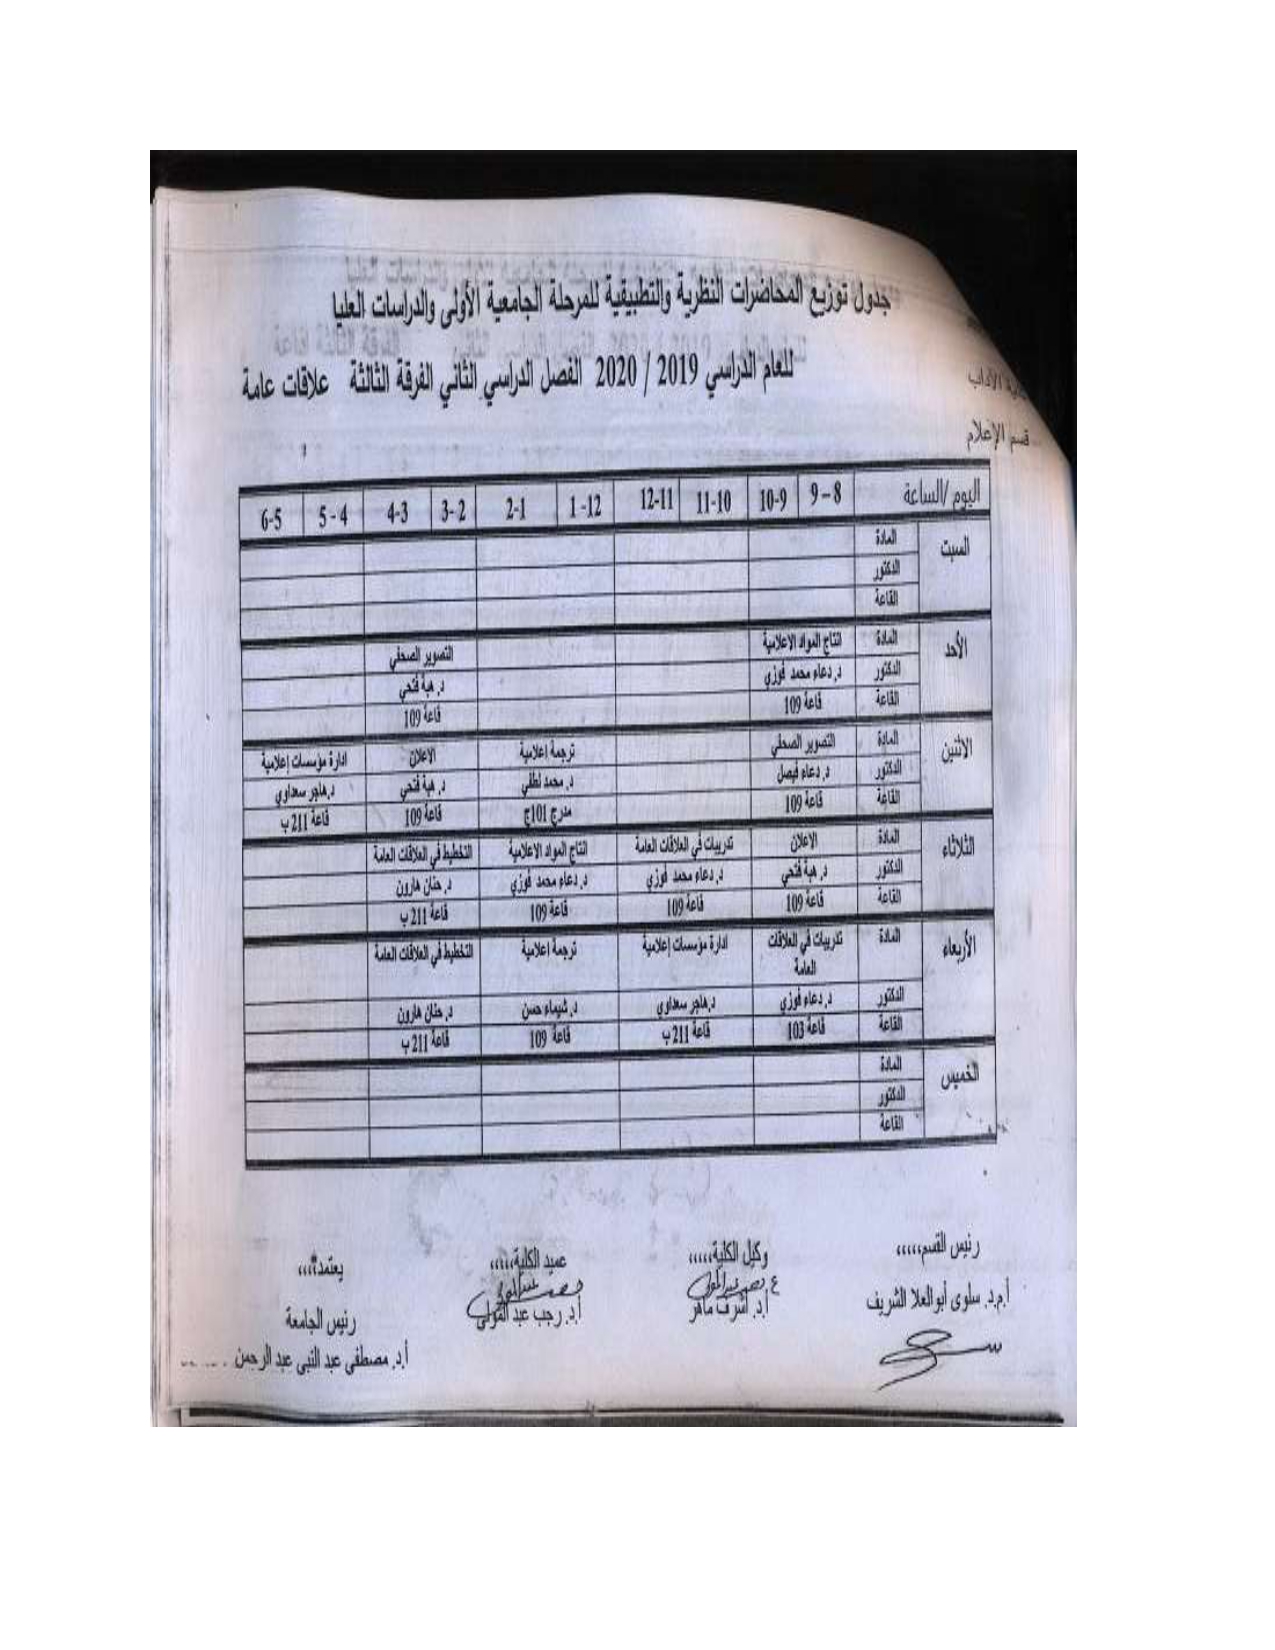 جدول توزيع المحاضرات النظرية والتطبيقية للمرحلة الجامعية الأولى والدراسات العليا
للعام الدراسي 2019 / 2020 الفصل الدراسي الثاني الفرقة الثالثة علاقات عامة
الآداب
قسم الإعلام
اليوم /الساعة 8 – 9 9-10 10-11 11-12 12- 1 1-2 2 -3 3-4 4 - 5 5-6
السبت المادة
الدكتور
القاعة
الأحد المادة انتاج المواد الاعلامية التصوير الصحفي
الدكتور د. دعاء محمد فوزي د. هبة فتحي
القاعة قاعة 109 قاعة 109
الاثنين المادة التصوير الصحفي ترجمة إعلامية الاعلان ادارة مؤسسات إعلامية
الدكتور د. دعاء فيصل د. محمد لطفي د. هبة فتحي د.هاجر سعداوي
القاعة قاعة 109 مدرج 101ج قاعة 109 قاعة 211 ب
الثلاثاء المادة الاعلان تدريبات في العلاقات العامة انتاج المواد الاعلامية التخطيط في العلاقات العامة
الدكتور د. هبة فتحي د. دعاء محمد فوزي د. دعاء محمد فوزي د. حنان هارون
القاعة قاعة 109 قاعة 109 قاعة 109 قاعة 211 ب
الأربعاء المادة تدريبات في العلاقات العامة ادارة مؤسسات إعلامية ترجمة إعلامية التخطيط في العلاقات العامة
الدكتور د. دعاء فوزي د.هاجر سعداوي د. شيماء حسن د. حنان هارون
القاعة قاعة 103 قاعة 211 ب قاعة 109 قاعة 211 ب
الخميس المادة
الدكتور
القاعة
رئيس القسم،،،،، وكيل الكلية،،،،، عميد الكلية،،،،، يعتمد،،،،
أ.م.د. سلوى أبوالعلا الشريف أ.د. أشرف ماهر أ.د. رجب عبد المولى رئيس الجامعة
أ.د. مصطفى عبد النبى عبد الرحمن